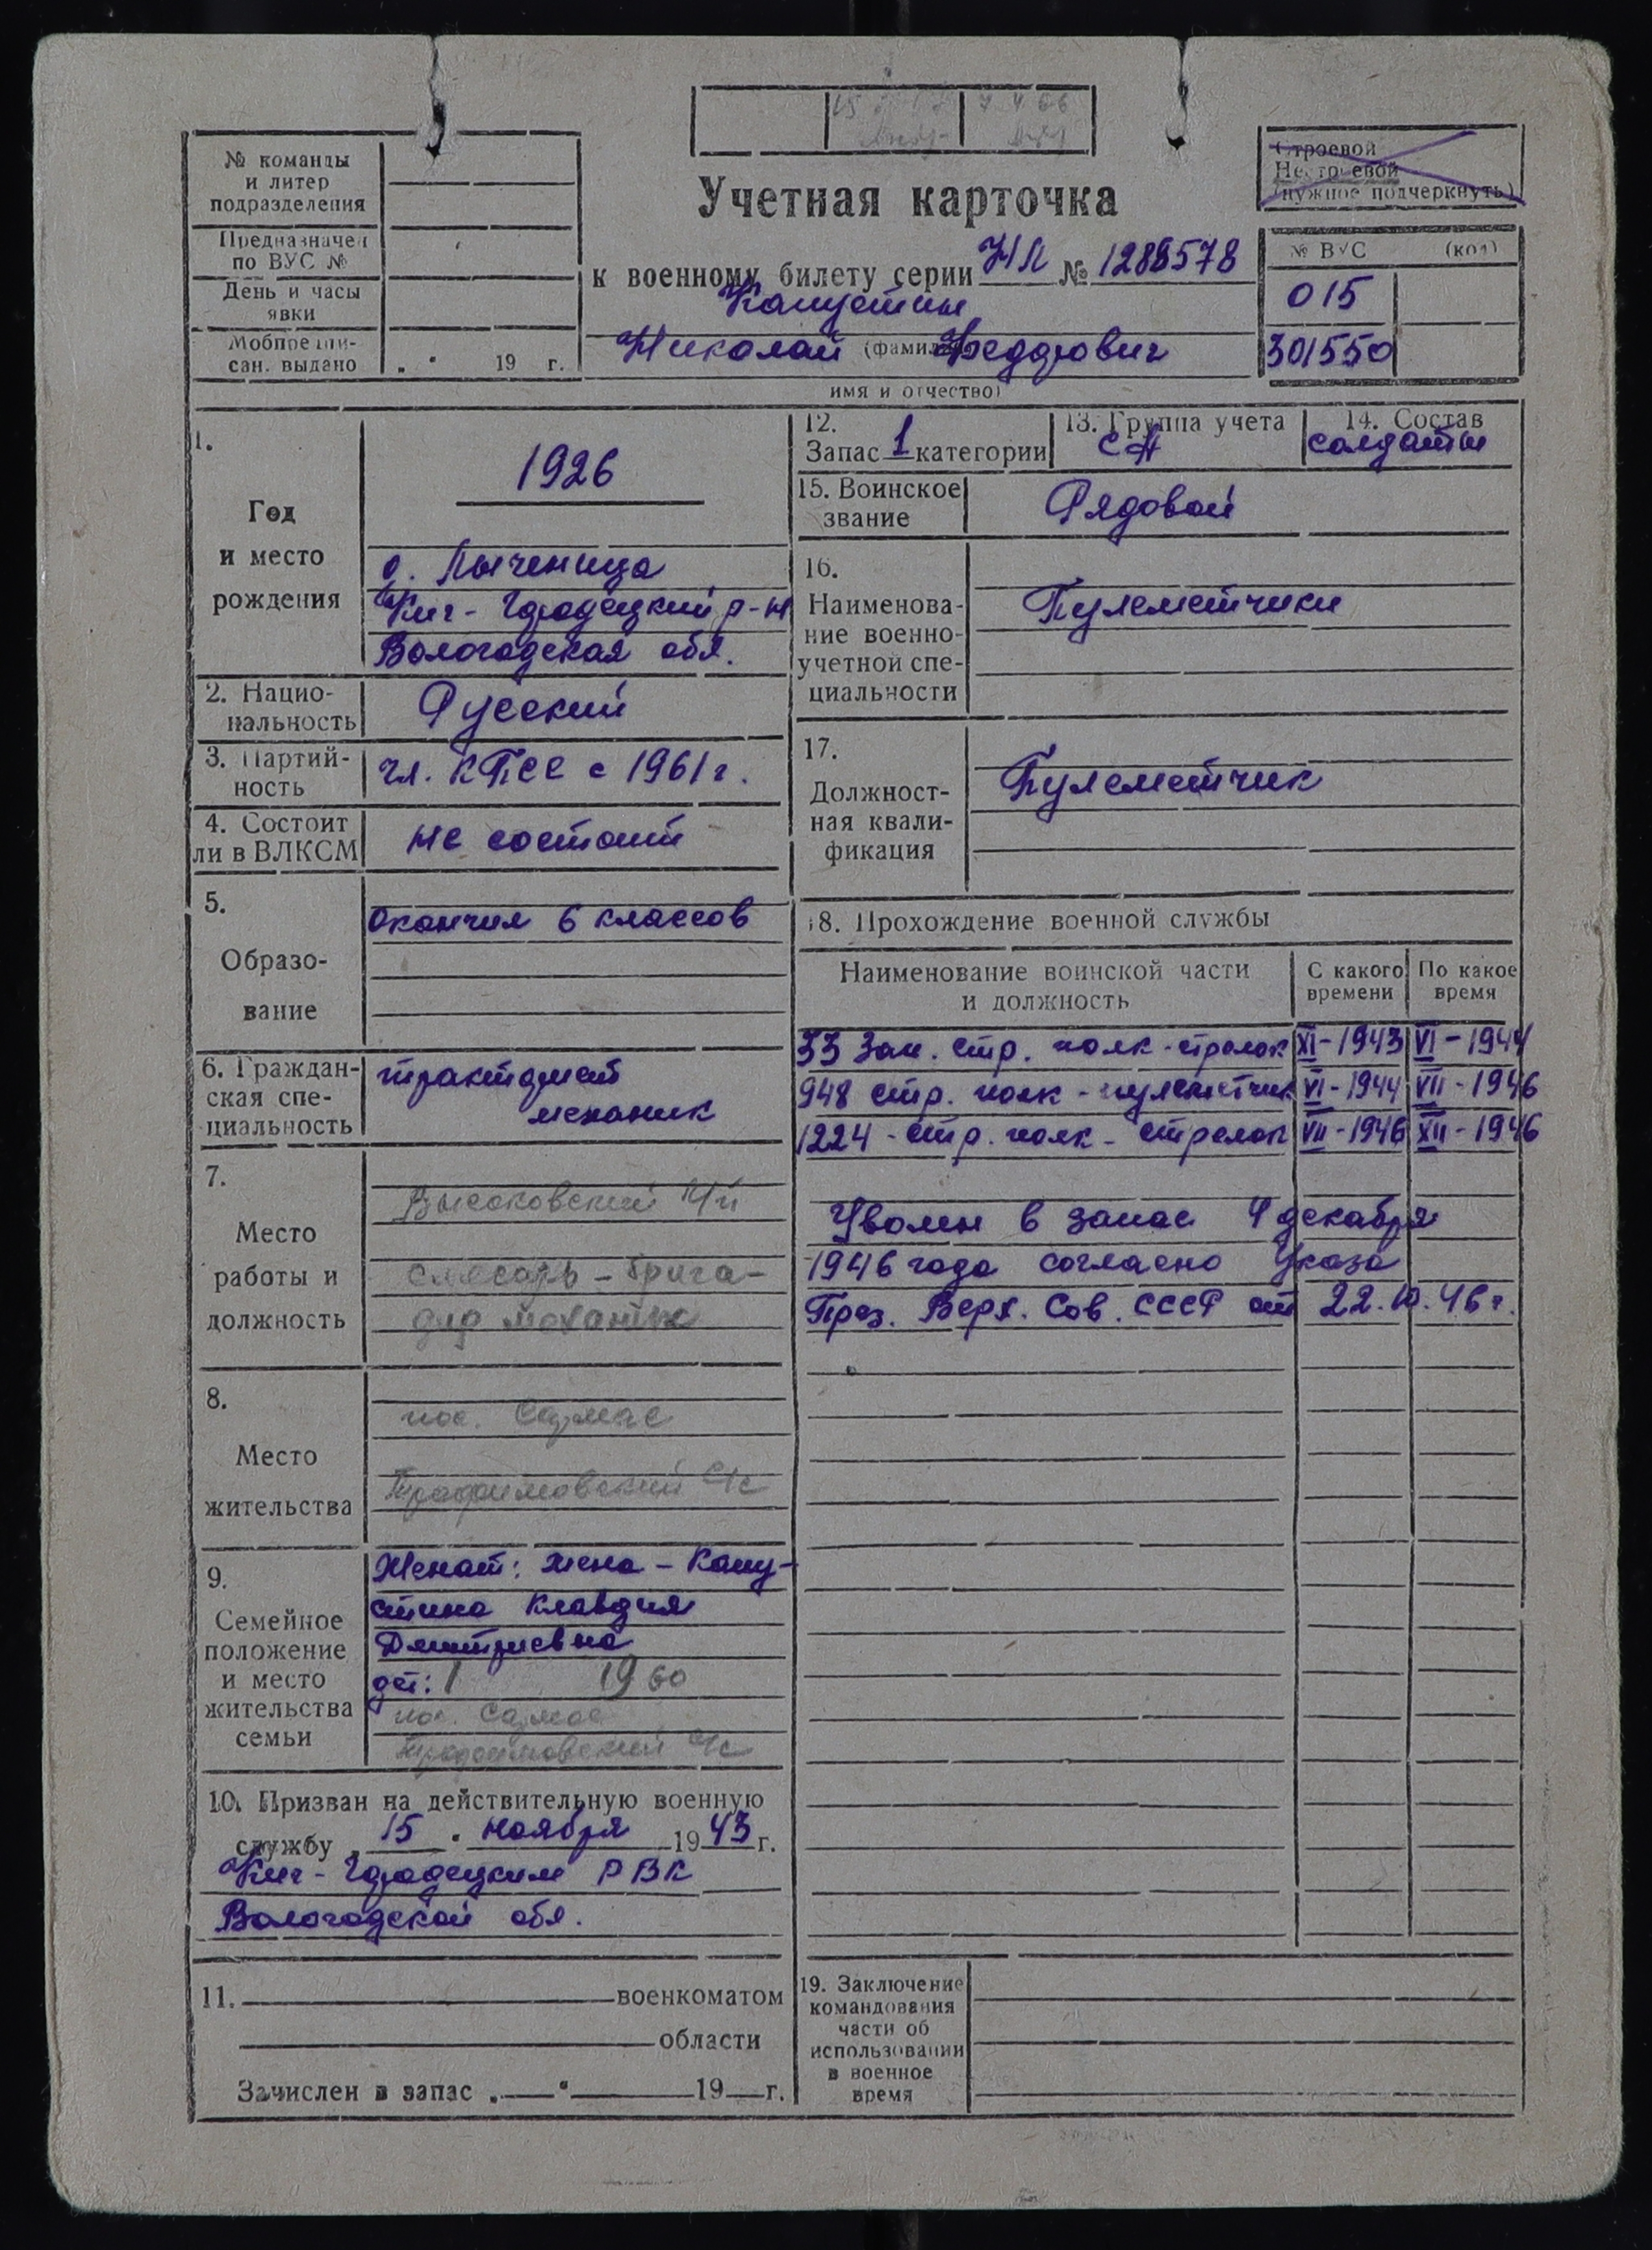 № команды
и литер
подразделения
Предназначен
по ВУС №
День и часы
явки
Мобпредпи-
сан. выдано „ “ 19 г.
Учетная карточка
к военному билету серии НЛ №
Капустин
(фамилия)
Николай Федорович
имя и отчество)
Строевой
Нестроевой
(нужное подчеркнуть)
№ ВУС (код)
015
301550
1.
Год
и место
рождения
1926
д. Лыченица
Кич-Городецкий р-н
Вологодская обл.
2. Нацио-
нальность
Русский
3. Партий-
ность
чл. КПСС с 1961 г.
4. Состоит
ли в ВЛКСМ
не состоит
5.
Образо-
вание
Окончил 6 классов
6. Граждан-
ская спе-
циальность
тракторист
механик
7.
Место
работы и
должность
Высоковский
слесарь-брига-
дир
8.
Место
жительства
пос.
с/с
9.
Семейное
положение
и место
жительства
семьи
Женат: жена - Капу-
стина Клавдия
Дмитриевна
дет: 1 1960
пос.
с/с
10. Призван на действительную военную
службу „15“ ноября 1943 г.
Кич-Городецким РВК
Вологодской обл.
11. военкоматом
области
Зачислен в запас „ “ 19 г.
12.
Запас 1 категории
13. Группа учета
СА
14. Состав
солдаты
15. Воинское
звание
Рядовой
16.
Наименова-
ние военно-
учетной спе-
циальности
Пулеметчики
17.
Должност-
ная квали-
фикация
Пулеметчик
18. Прохождение военной службы
Наименование воинской части
и должность
С какого
времени
По какое
время
33 Зап. стр. полк - стрелок XI-1943 VI-1944
948 стр. полк - пулеметчик VI-1944 VII-1946
1224 - стр. полк - стрелок VII-1946 XII-1946
Уволен в запас 4 декабря
1946 года согласно Указа
През. Верх. Сов. СССР от 22.10.46 г.
19. Заключение
командования
части об
использовании
в военное
время